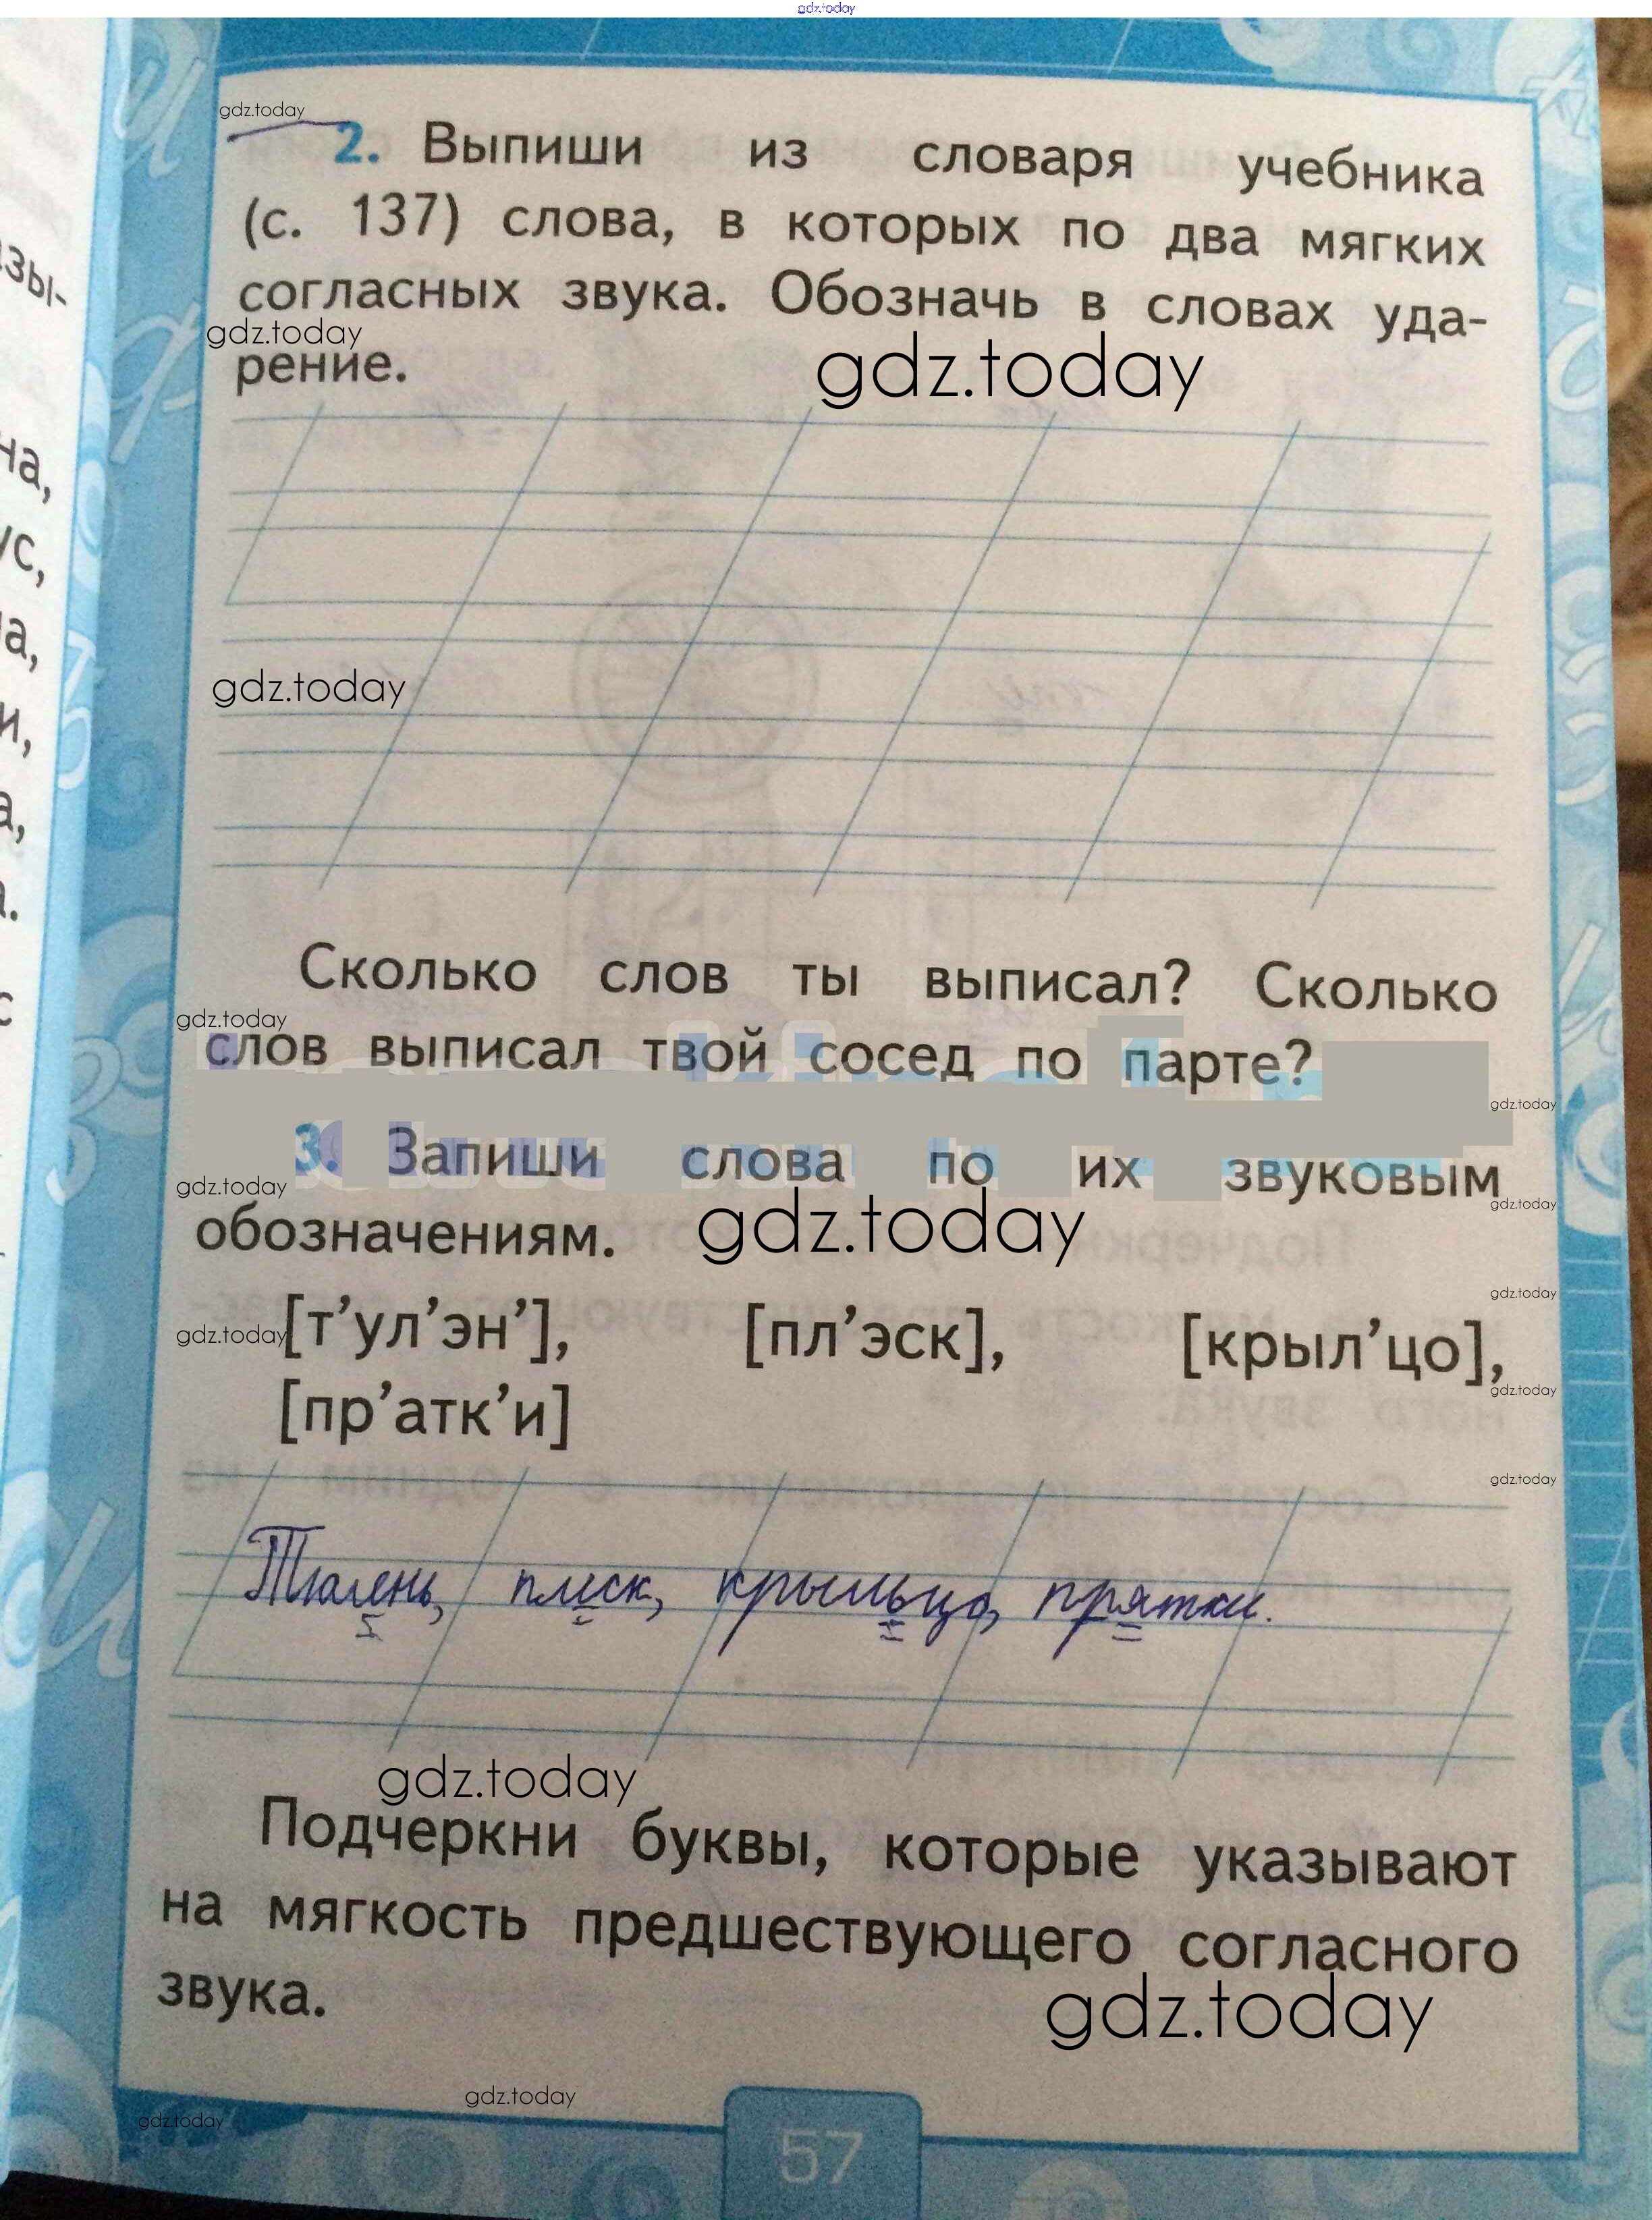 gdz.today
gdz.today
2. Выпиши из словаря учебника
(с. 137) слова, в которых по два мягких
согласных звука. Обозначь в словах уда-
gdz.today
рение.
gdz.today
зы-
на,
ус,
а,
и,
gdz.today
а,
а.
Сколько слов ты выписал? Сколько
gdz.today
слов выписал твой сосед по парте?
gdz.today
3. Запиши слова по их звуковым
gdz.today
gdz.today
обозначениям.
gdz.today
gdz.today
gdz.today
[т’ул’эн’], [пл’эск], [крыл’цо],
gdz.today
[пр’атк’и]
gdz.today
Тюлень, плеск, крыльцо, прятки.
gdz.today
Подчеркни буквы, которые указывают
на мягкость предшествующего согласного
звука.
gdz.today
gdz.today
gdz.today
57